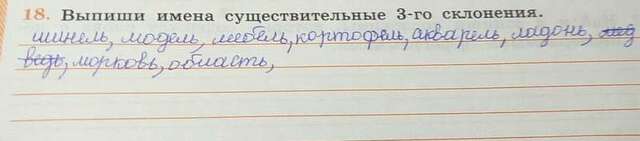 18. Выпиши имена существительные 3-го склонения.
шинель, модель, мебель, картофель, акварель, ладонь, мед
ведь, морковь, область,